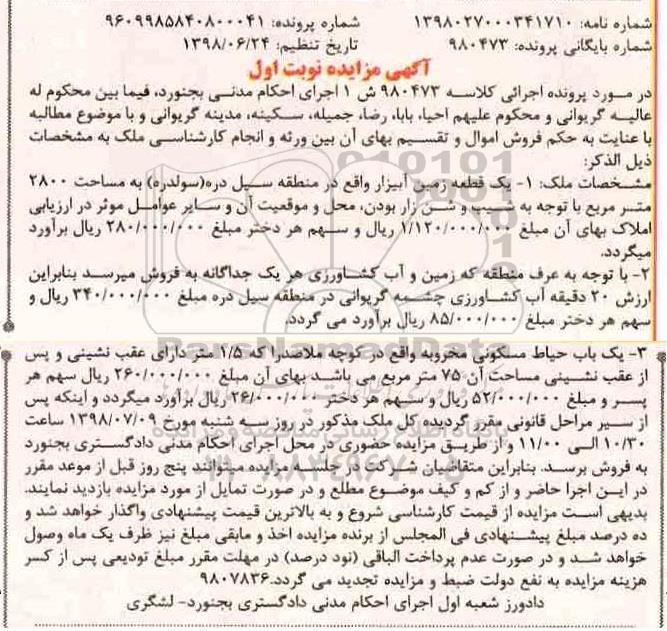 شماره نامه: ۱۳۹۸۰۲۷۰۰۰۳۴۱۷۱۰ شماره پرونده: ۹۶۰۹۹۸۵۸۴۰۸۰۰۰۴۱
شماره بایگانی پرونده: ۹۸۰۴۷۳ تاریخ تنظیم: ۱۳۹۸/۰۶/۲۴
آگهی مزایده نوبت اول
در مورد پرونده اجرائی کلاسه ۹۸۰۴۷۳ ش ۱ اجرای احکام مدنی بجنورد، فیما بین محکوم له
عالیه گریوانی و محکوم علیهم احیا، بابا، رضا، جمیله، سکینه، مدینه گریوانی و با موضوع مطالبه
با عنایت به حکم فروش اموال و تقسیم بهای آن بین ورثه و انجام کارشناسی ملک به مشخصات
ذیل الذکر:
مشخصات ملک: ۱- یک قطعه زمین آبیزار واقع در منطقه سیل دره(سولدره) به مساحت ۲۸۰۰
متر مربع با توجه به شیب و شن زار بودن، محل و موقعیت آن و سایر عوامل موثر در ارزیابی
املاک بهای آن مبلغ ۱/۱۲۰/۰۰۰/۰۰۰ ریال و سهم هر دختر مبلغ ۲۸۰/۰۰۰/۰۰۰ ریال برآورد
میگردد.
۲- با توجه به عرف منطقه که زمین و آب کشاورزی هر یک جداگانه به فروش میرسد بنابراین
ارزش ۲۰ دقیقه آب کشاورزی چشمه گریوانی در منطقه سیل دره مبلغ ۳۴۰/۰۰۰/۰۰۰ ریال و
سهم هر دختر مبلغ ۸۵/۰۰۰/۰۰۰ ریال برآورد می گردد.
ParsNamadData
۳- یک باب حیاط مسکونی مخروبه واقع در کوچه ملاصدرا که ۱/۵ متر دارای عقب نشینی و پس
از عقب نشینی مساحت آن ۷۵ متر مربع می باشد بهای آن مبلغ ۲۶۰/۰۰۰/۰۰۰ ریال سهم هر
پسر و مبلغ ۵۲/۰۰۰/۰۰۰ ریال و سهم هر دختر ۲۶/۰۰۰/۰۰۰ ریال برآورد میگردد و اینکه پس
از سیر مراحل قانونی مقرر گردیده کل ملک مذکور در روز سه شنبه مورخ ۱۳۹۸/۰۷/۰۹ ساعت
۱۰/۳۰ الی ۱۱/۰۰ و از طریق مزایده حضوری در محل اجرای احکام مدنی دادگستری بجنورد
به فروش برسد. بنابراین متقاضیان شرکت در جلسه مزایده میتوانند پنج روز قبل از موعد مقرر
در این اجرا حاضر و از کم و کیف موضوع مطلع و در صورت تمایل از مورد مزایده بازدید نمایند.
بدیهی است مزایده از قیمت کارشناسی شروع و به بالاترین قیمت پیشنهادی واگذار خواهد شد و
ده درصد مبلغ پیشنهادی فی المجلس از برنده مزایده اخذ و مابقی مبلغ نیز ظرف یک ماه وصول
خواهد شد و در صورت عدم پرداخت الباقی (نود درصد) در مهلت مقرر مبلغ تودیعی پس از کسر
هزینه مزایده به نفع دولت ضبط و مزایده تجدید می گردد.۹۸۰۷۸۳۶
دادورز شعبه اول اجرای احکام مدنی دادگستری بجنورد- لشگری